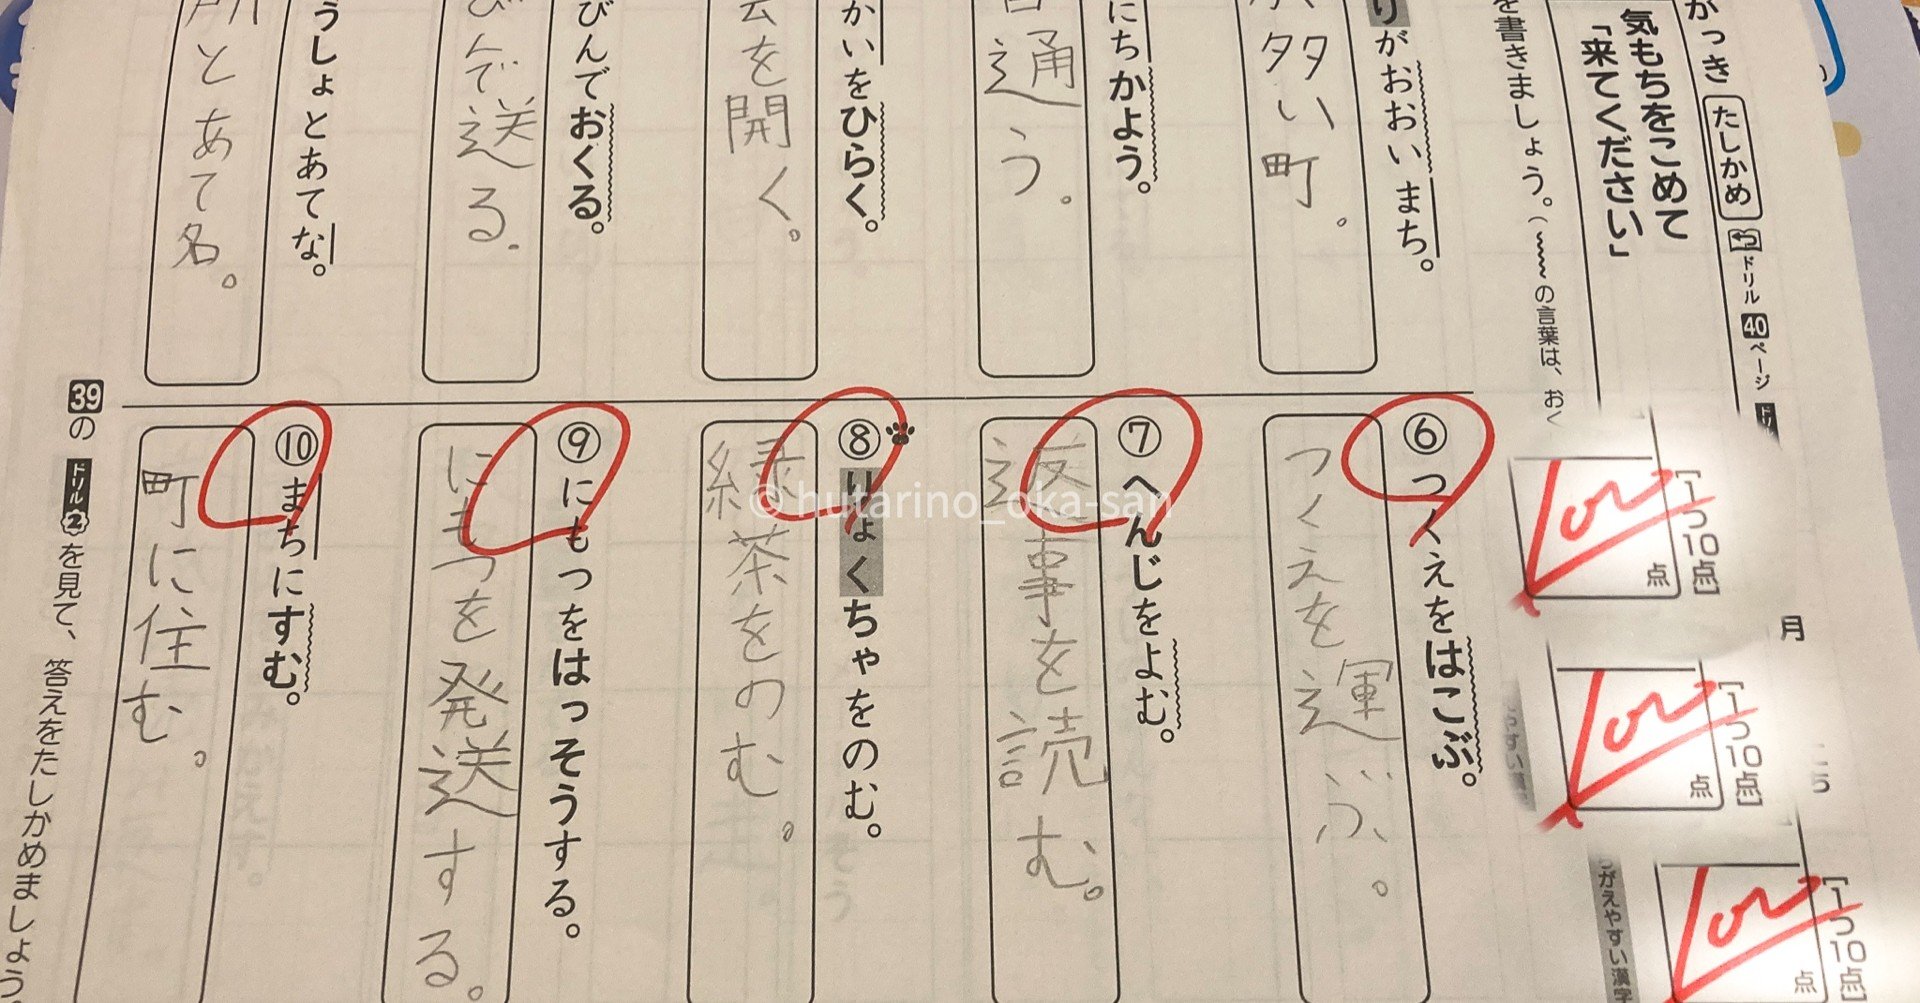 がっき
たしかめ
ドリル 40 ページ
気もちをこめて
「来てください」
を書きましょう。(の言葉は、おく
[1つ10点]
点
[1つ10点]
点
[1つ10点]
点
100
100
100
月
がえやすい漢字
りがおおいまち。
多い町。
にちかよう。
通う。
かいをひらく。
を開く。
びんでおくる。
びんで送る.
うしょとあてな。
所とあて名。
⑥つくえをはこぶ。
つくえを運ぶ。
⑦へんじをよむ。
返事を読む。
⑧りょくちゃをのむ。
緑茶をのむ。
⑨にもつをはっそうする。
にもつを発送する。
⑩まちにすむ。
町に住む。
39の ドリル2を見て、答えをたしかめましょう
©hutarino_oka-san